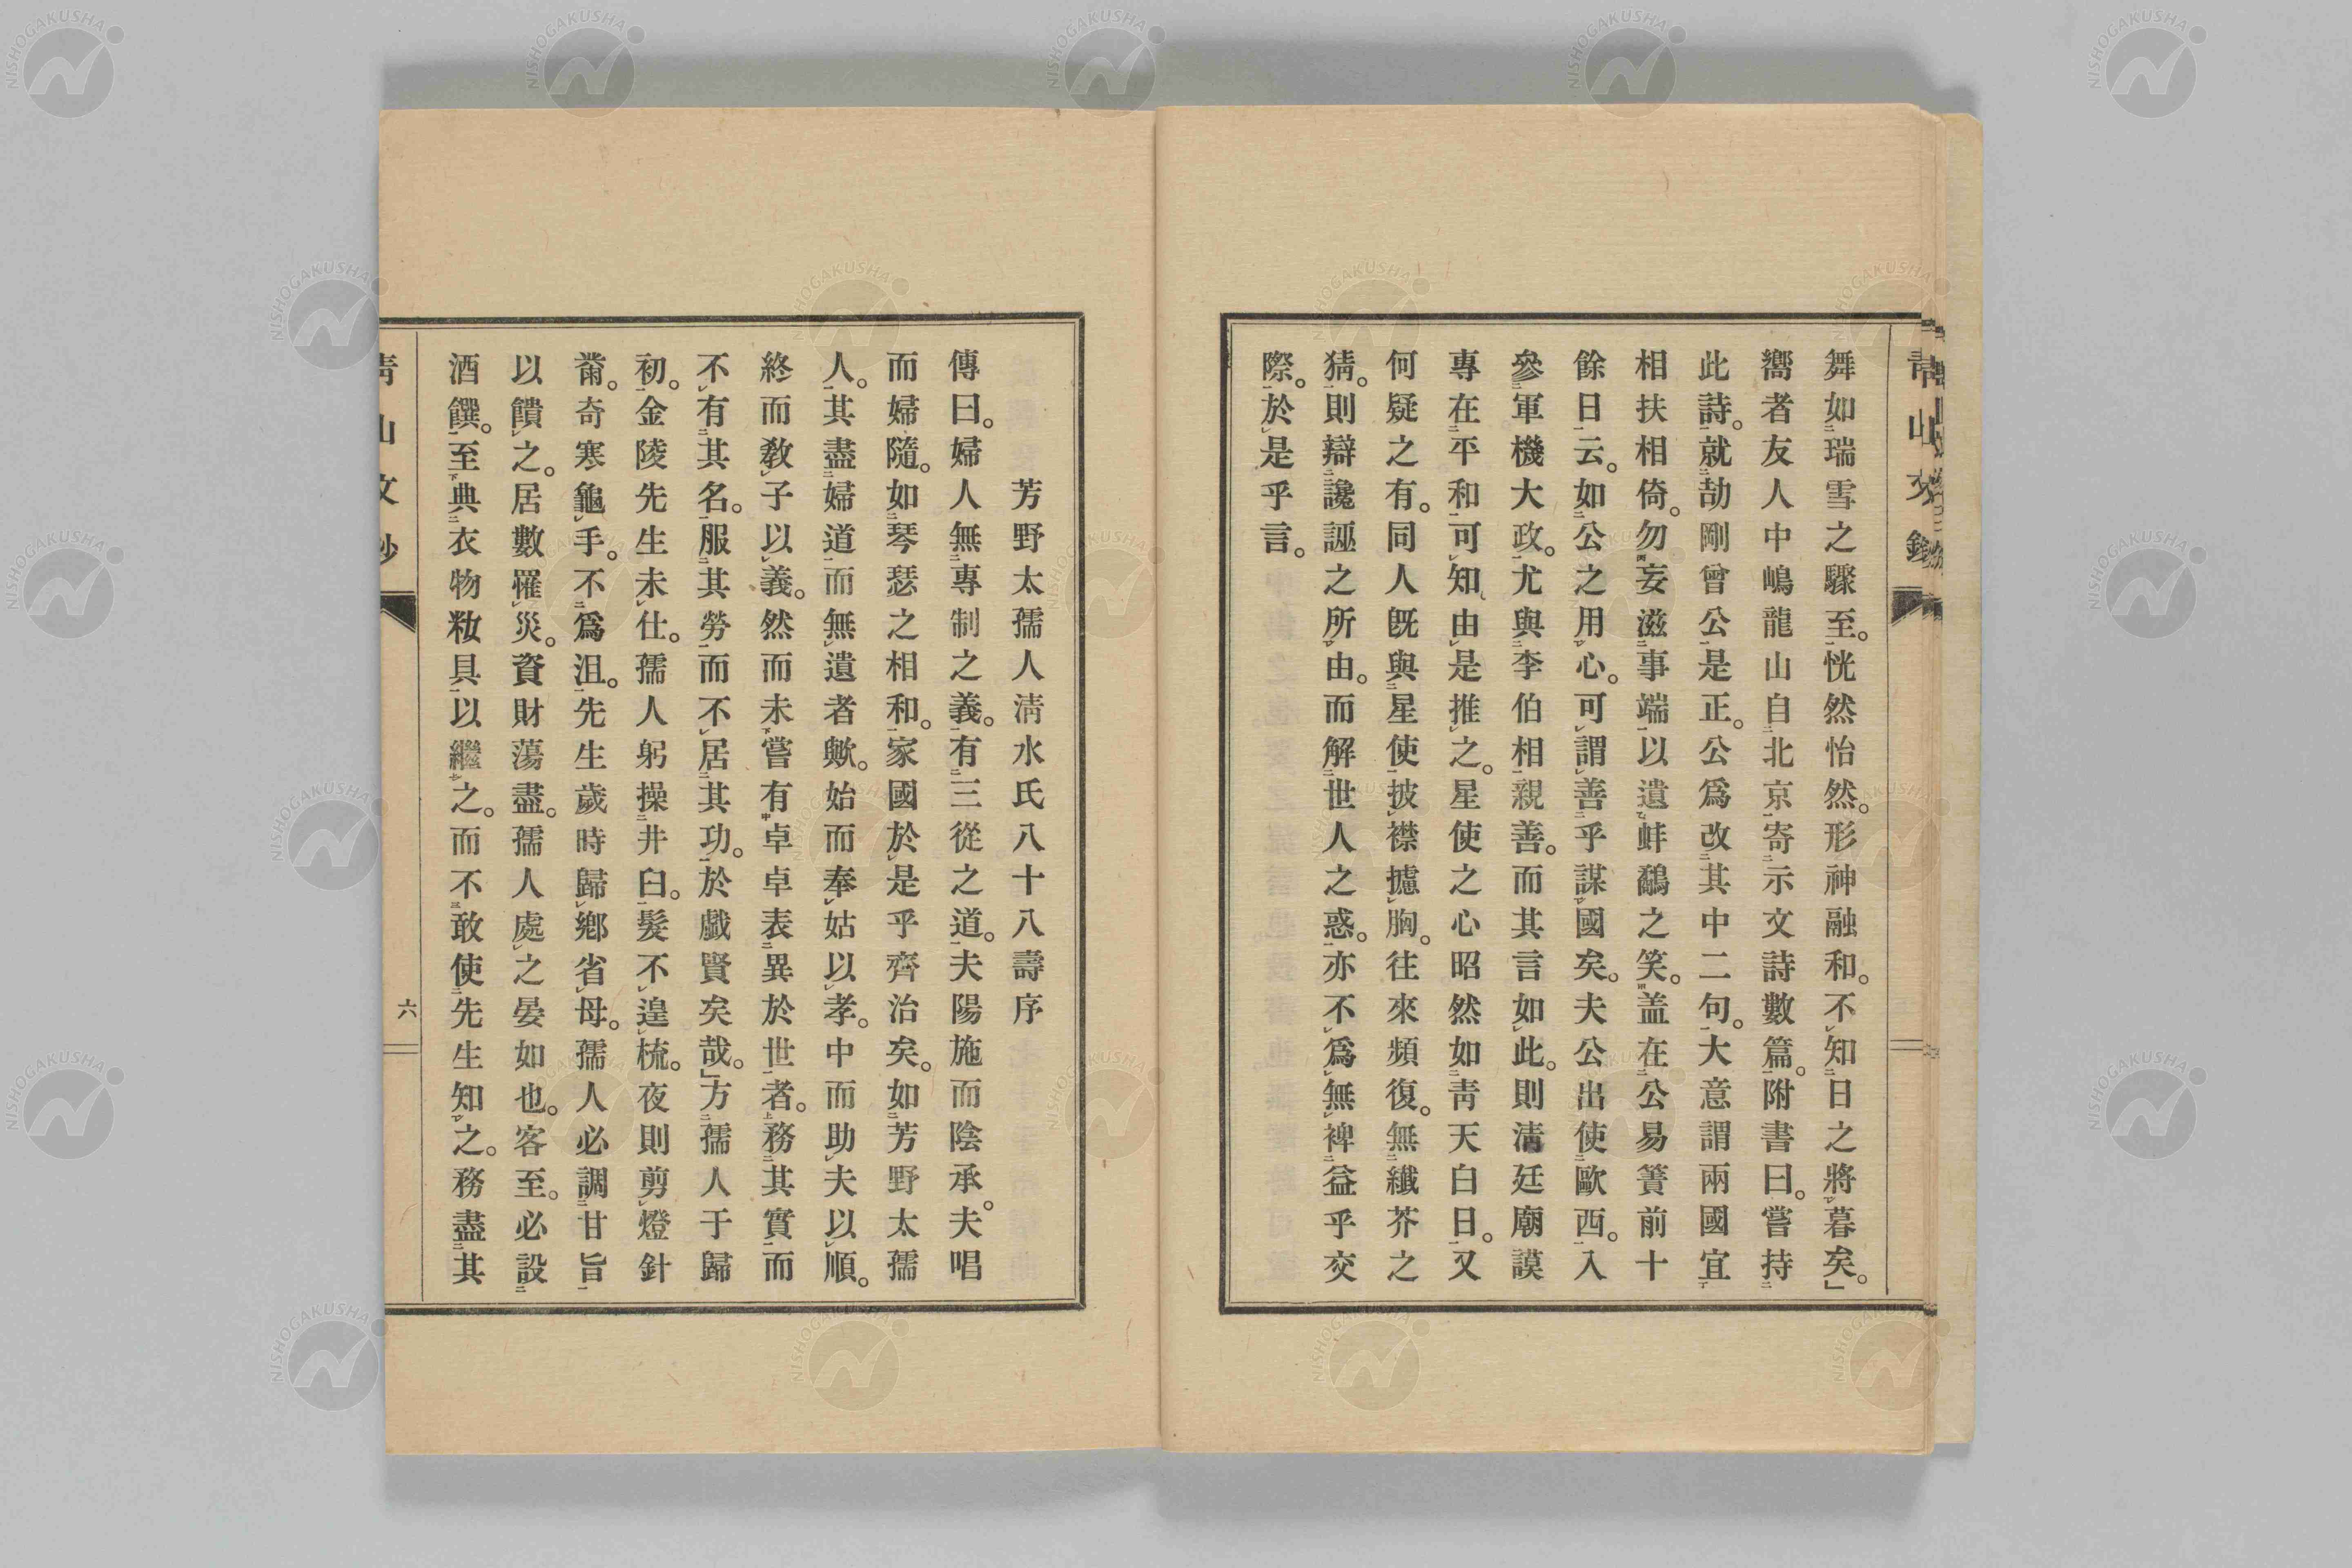 青山文鈔
舞如瑞雪之驟至。恍然怡然。形神融和。不知日之將暮矣。」
嚮者友人中嶋龍山自北京寄示文詩數篇。附書曰。嘗持
此詩。就劼剛曾公是正。公爲改其中二句。大意謂兩國宜
相扶相倚。勿妄滋事端以遺蚌鷸之笑。盖在公易簀前十
餘日云。如公之用心。可謂善乎謀國矣。夫公出使歐西。入
參軍機大政。尤與李伯相親善。而其言如此。則清廷廟謨
專在平和可知由是推之。星使之心昭然如青天白日。又
何疑之有。同人既與星使披襟攄胸。往來頻復。無纖芥之
猜。則辯讒誣之所由。而解世人之惑。亦不爲無裨益乎交
際。於是乎言。
芳野太孺人淸水氏八十八壽序
傳曰。婦人無專制之義。有三從之道。夫陽施而陰承。夫唱
而婦隨。如琴瑟之相和。家國於是乎齊治矣。如芳野太孺
人。其盡婦道而無遺者歟。始而奉姑以孝。中而助夫以順。
終而敎子以義。然而未嘗有卓卓表異於世者。務其實而
不有其名。服其勞而不居其功。於戲賢矣哉。」方孺人于歸
初。金陵先生未仕。孺人躬操井臼。髮不遑梳。夜則剪燈針
黹。奇寒龜手。不爲沮。先生歲時歸鄕省母。孺人必調甘旨
以饋之。居數罹災。資財蕩盡。孺人處之晏如也。客至。必設
酒饌。至典衣物敉具以繼之。而不敢使先生知之。務盡其
青山文鈔
六
NISHOGAKUSHA